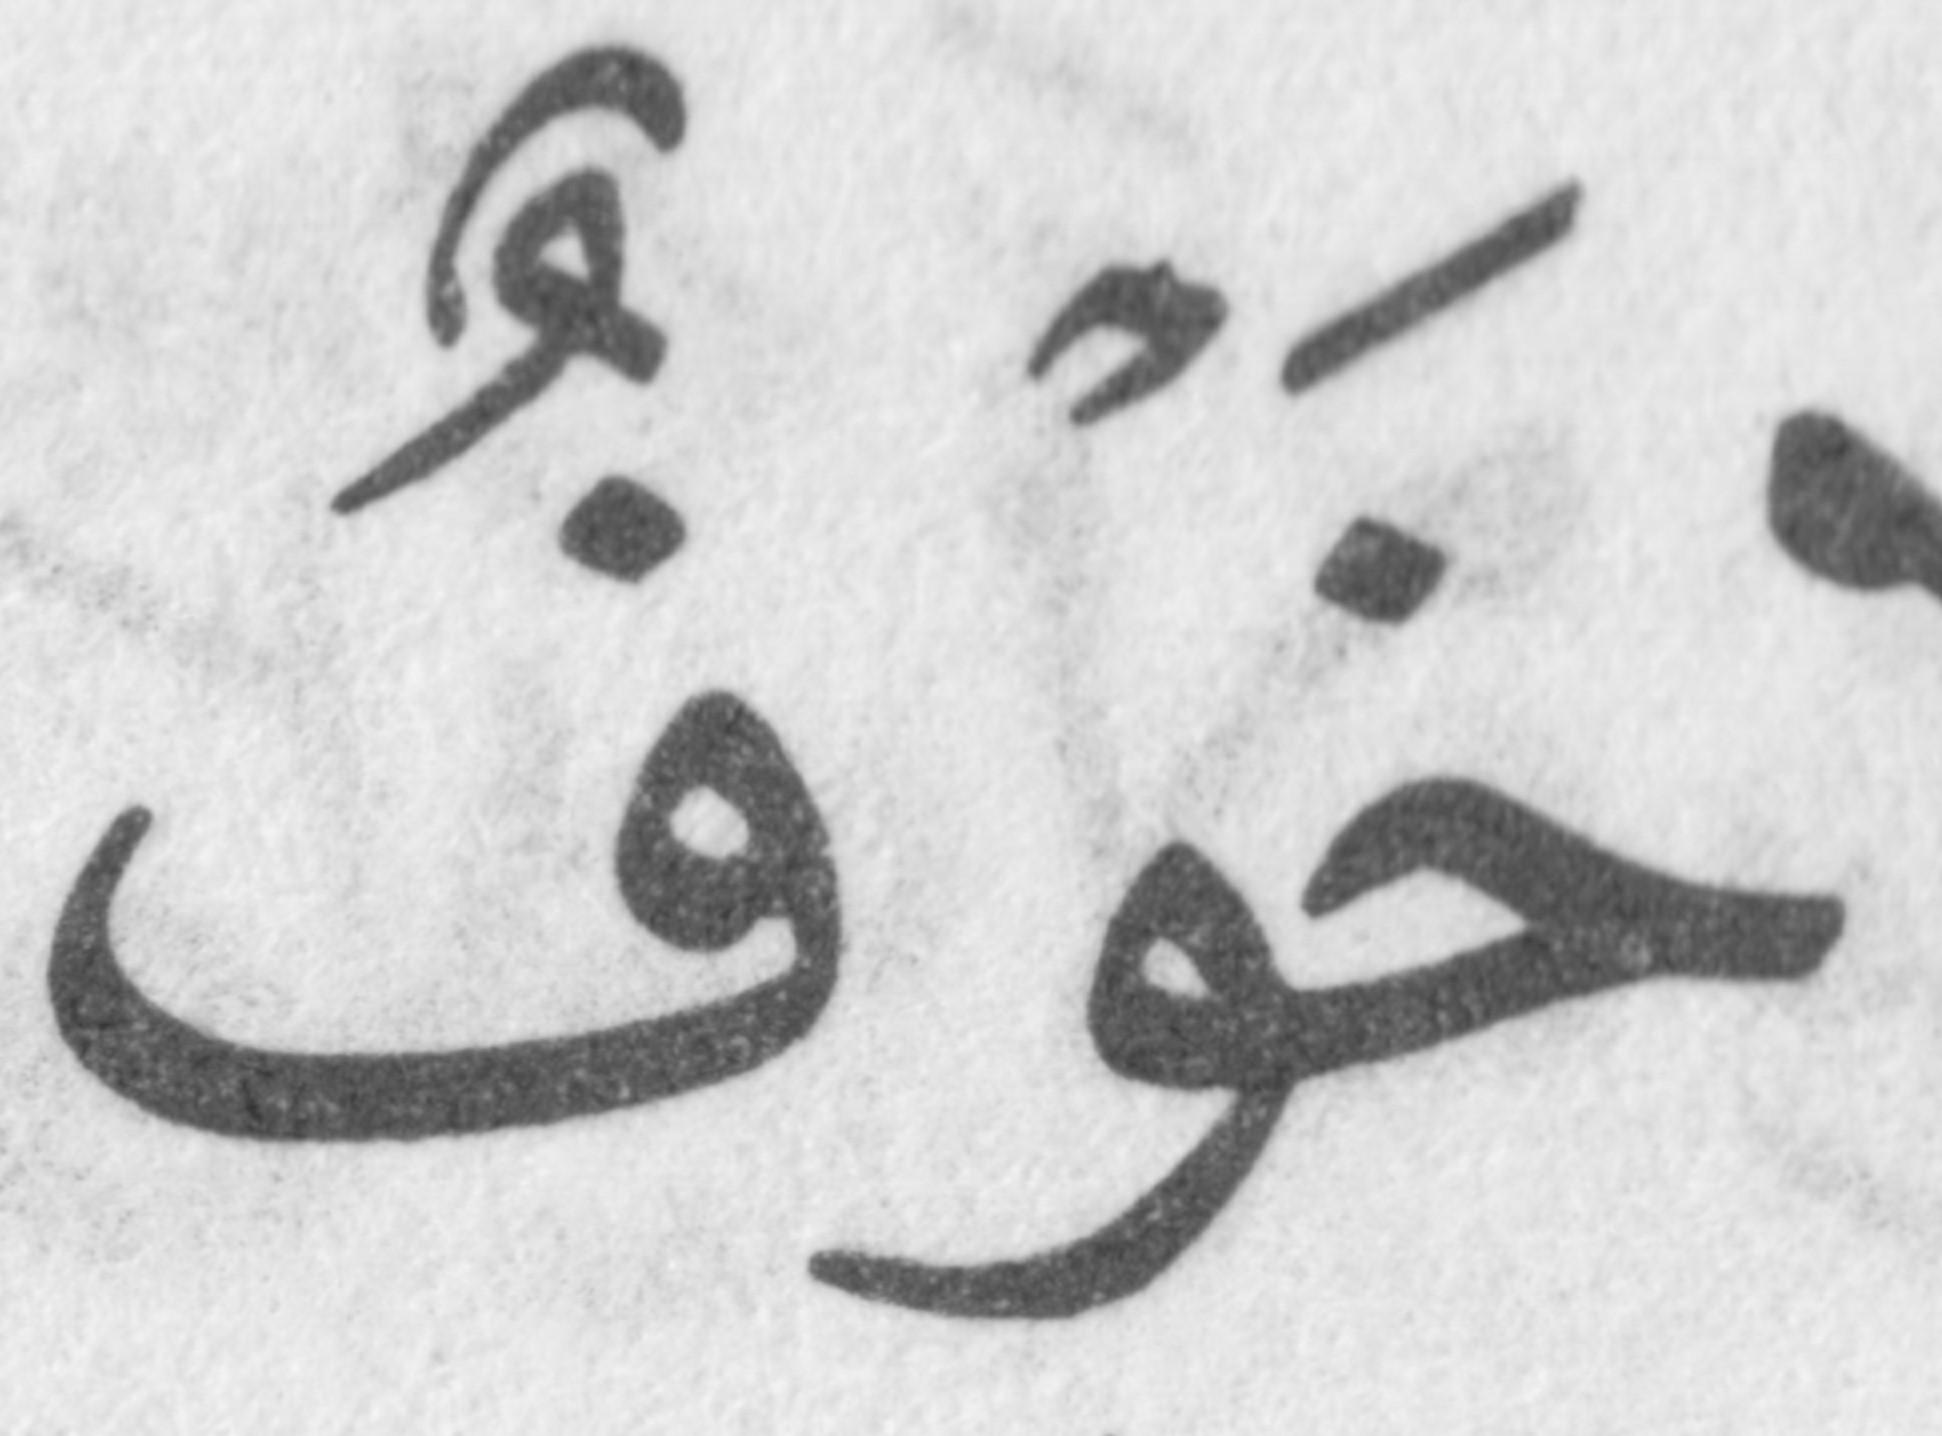 خَوْفٌ